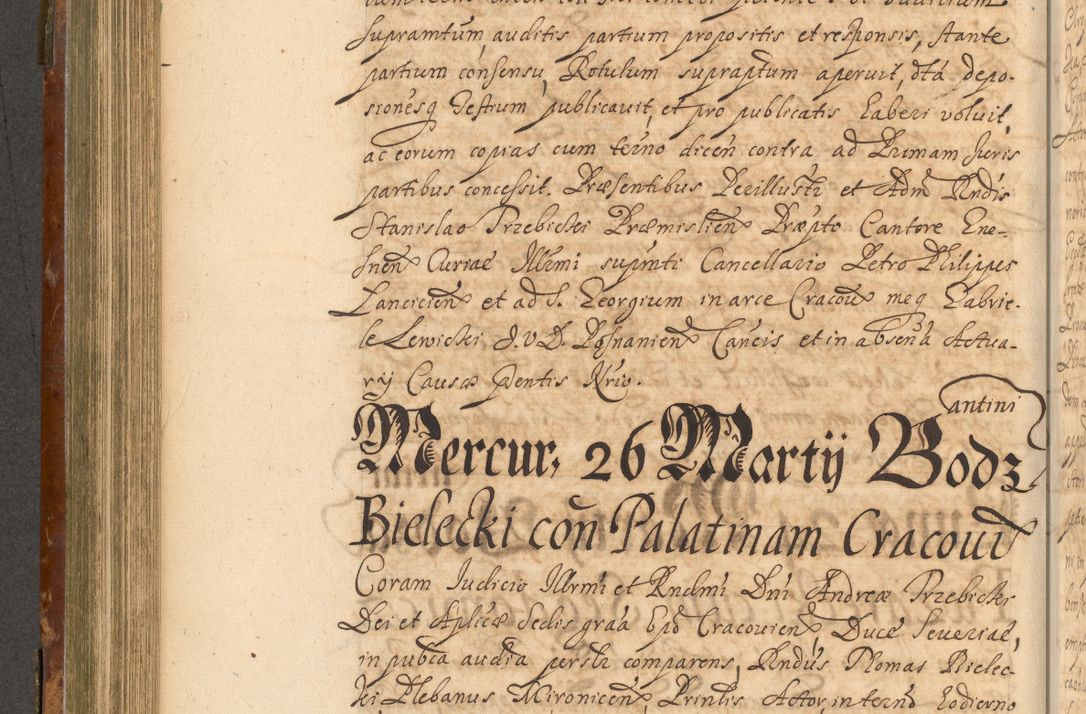 supramtum, auditis partium propositis et responsis, stante
partium consensu, Rotulum supraptum aperuit, dtá depo-
sionesq Testium publicavit, et pro publicatis haberi voluit,
ac eorum copias cum termo dicen contra ad Primam Juris
partibus concessit. Præsentibus Perillustri et Adm Rndis
Stanislao Przebicki Præmislien Præpto Cantore Gne-
snen Curiae Illrmi suprnti Cancellario Petro Philippo
Lancicien et ad S. Georgium in arce Cracou meq Gabrie-
le Lewicki J.V.D. Posnanien Cancis et in absena Actua-
rij Causæ pentis Nrio.
Mercur, 26 Martij Bodzantini
Bielecki con Palatinam Cracoui
Coram Judicio Illrmi et Rndmi Dni Andreæ Przebicki
Dei et Aplicæ Sedis graa Epo Cracovien, Duce Severiae,
in pubca audia persltr comparens, Rndus Thomas Bielec-
ki Plebanus Mironicen, Prinlis Actor, in termo hodierno